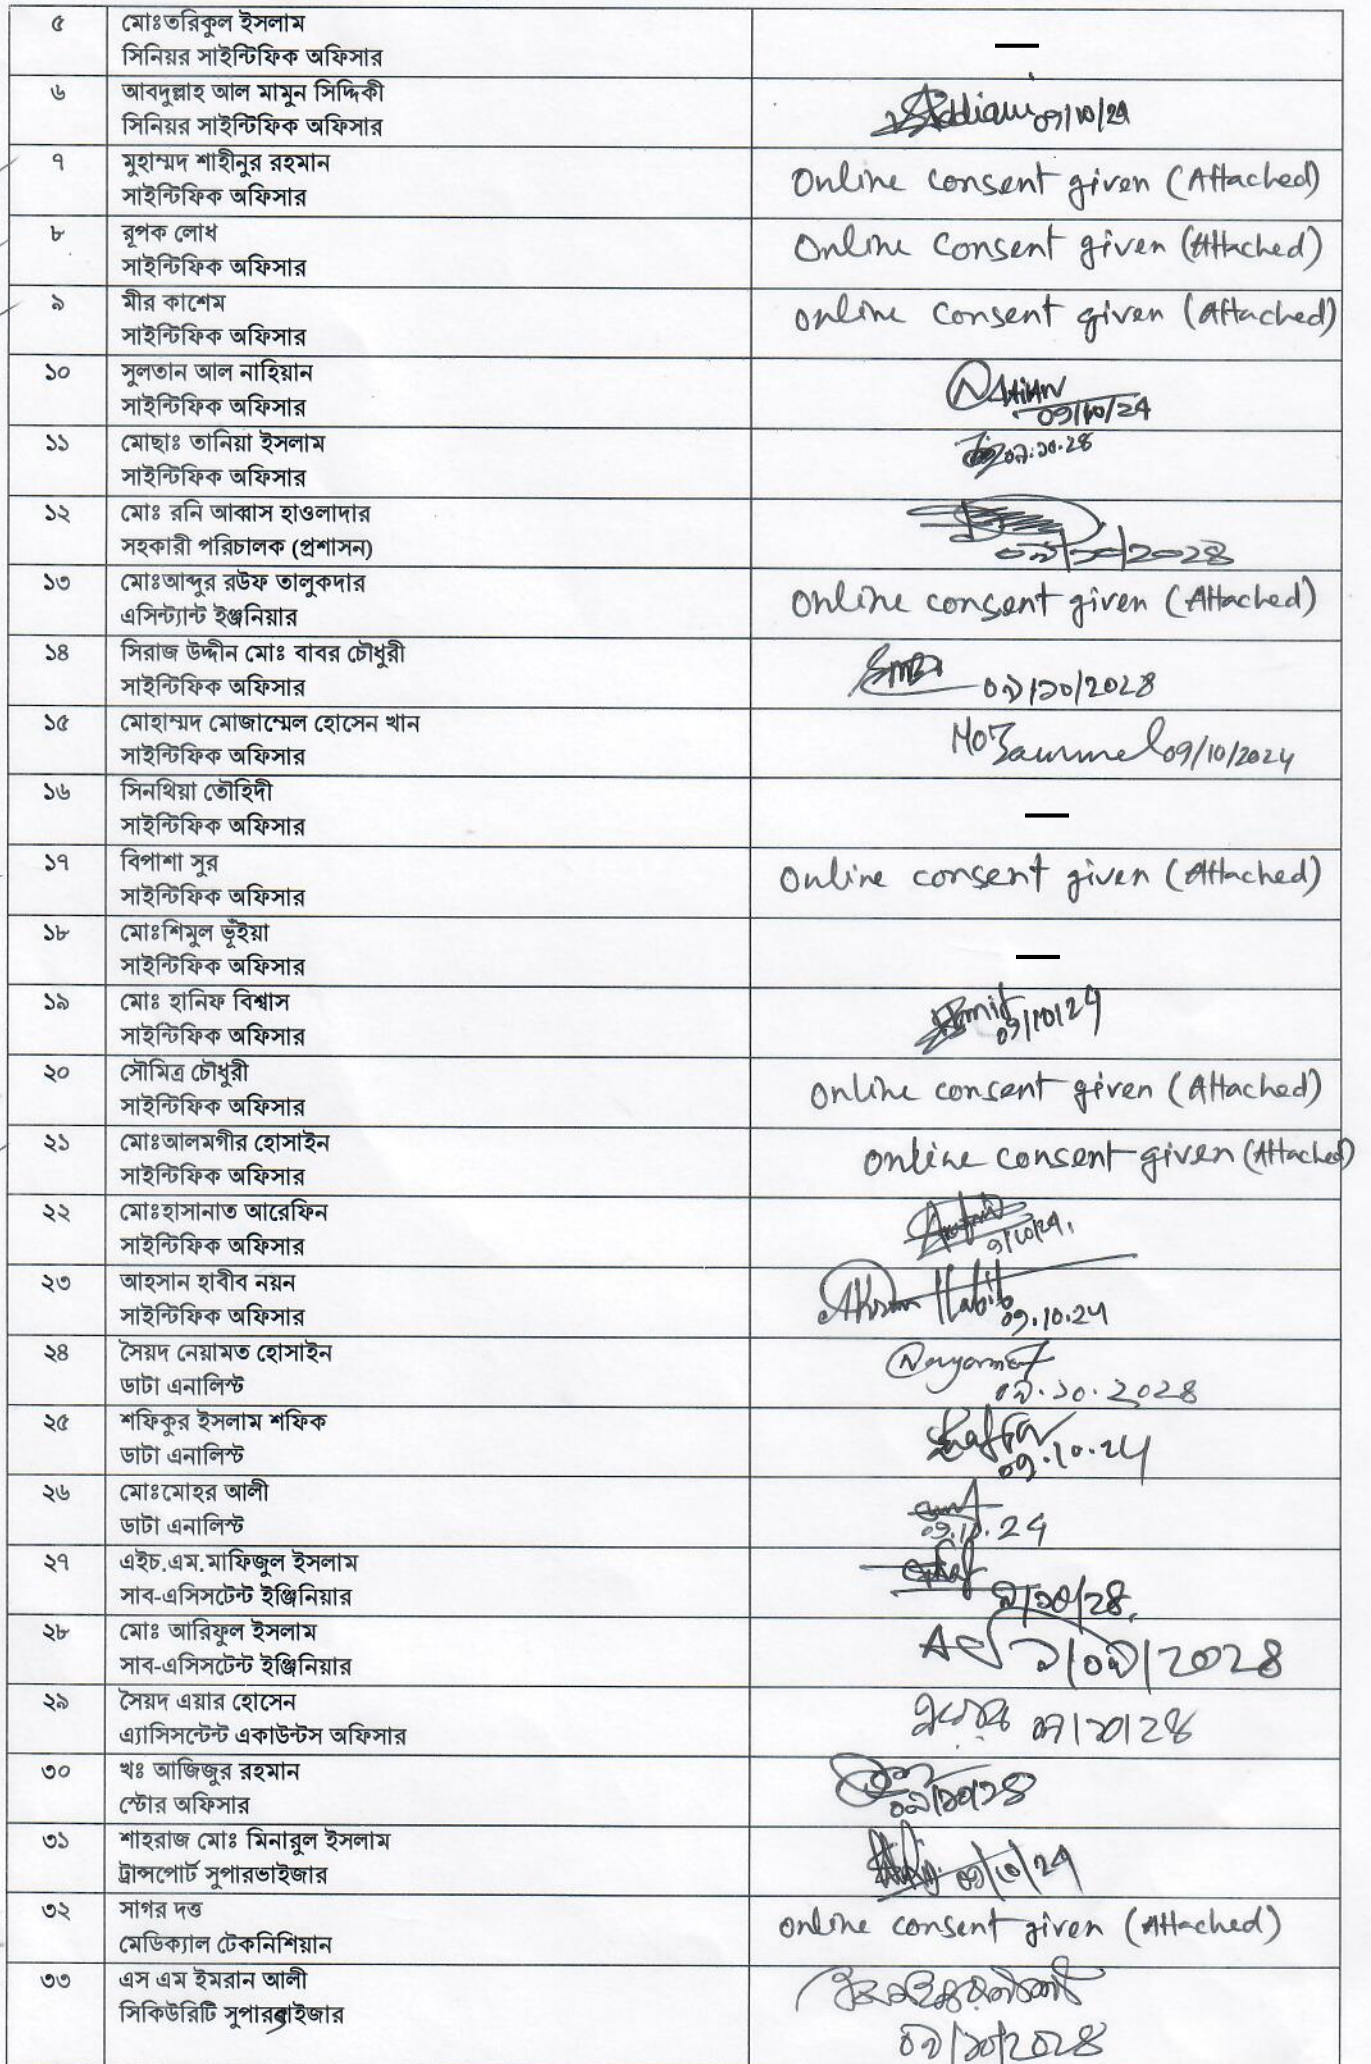 ৫
মোঃতরিকুল ইসলাম
সিনিয়র সাইন্টিফিক অফিসার
—
৬
আবদুল্লাহ আল মামুন সিদ্দিকী
সিনিয়র সাইন্টিফিক অফিসার
09/10/24
৭
মুহাম্মদ শাহীনুর রহমান
সাইন্টিফিক অফিসার
Online consent given (Attached)
৮
রূপক লোধ
সাইন্টিফিক অফিসার
Online consent given (Attached)
৯
মীর কাশেম
সাইন্টিফিক অফিসার
online consent given (Attached)
১০
সুলতান আল নাহিয়ান
সাইন্টিফিক অফিসার
09/10/24
১১
মোছাঃ তানিয়া ইসলাম
সাইন্টিফিক অফিসার
০৯.১০.২৪
১২
মোঃ রনি আব্বাস হাওলাদার
সহকারী পরিচালক (প্রশাসন)
০৯/১০/২০২৪
১৩
মোঃআব্দুর রউফ তালুকদার
এসিন্ট্যান্ট ইঞ্জনিয়ার
Online consent given (Attached)
১৪
সিরাজ উদ্দীন মোঃ বাবর চৌধুরী
সাইন্টিফিক অফিসার
০৯/১০/২০২৪
১৫
মোহাম্মদ মোজাম্মেল হোসেন খান
সাইন্টিফিক অফিসার
09/10/2024
১৬
সিনথিয়া তৌহিদী
সাইন্টিফিক অফিসার
—
১৭
বিপাশা সুর
সাইন্টিফিক অফিসার
Online consent given (Attached)
১৮
মোঃশিমুল ভূঁইয়া
সাইন্টিফিক অফিসার
—
১৯
মোঃ হানিফ বিশ্বাস
সাইন্টিফিক অফিসার
09/10/24
২০
সৌমিত্র চৌধুরী
সাইন্টিফিক অফিসার
Online consent given (Attached)
২১
মোঃআলমগীর হোসাইন
সাইন্টিফিক অফিসার
online consent given (Attached)
২২
মোঃহাসানাত আরেফিন
সাইন্টিফিক অফিসার
9/10/24.
২৩
আহসান হাবীব নয়ন
সাইন্টিফিক অফিসার
Ahsan Habib
09.10.24
২৪
সৈয়দ নেয়ামত হোসাইন
ডাটা এনালিস্ট
০৯.১০.২০২৪
২৫
শফিকুর ইসলাম শফিক
ডাটা এনালিস্ট
09.10.24
২৬
মোঃমোহর আলী
ডাটা এনালিস্ট
09.10.24
২৭
এইচ.এম.মাফিজুল ইসলাম
সাব-এসিসটেন্ট ইঞ্জিনিয়ার
৯/১০/২৪.
২৮
মোঃ আরিফুল ইসলাম
সাব-এসিসটেন্ট ইঞ্জিনিয়ার
২৯
সৈয়দ এয়ার হোসেন
এ্যাসিসন্টেন্ট একাউন্টস অফিসার
০৯/১০/২৪
৩০
খঃ আজিজুর রহমান
স্টোর অফিসার
০৯/১০/২৪
৩১
শাহরাজ মোঃ মিনারুল ইসলাম
ট্রান্সপোর্ট সুপারভাইজার
09/10/24
৩২
সাগর দত্ত
মেডিক্যাল টেকনিশিয়ান
Online consent given (Attached)
৩৩
এস এম ইমরান আলী
সিকিউরিটি সুপারভাইজার
০৯/১০/২০২৪